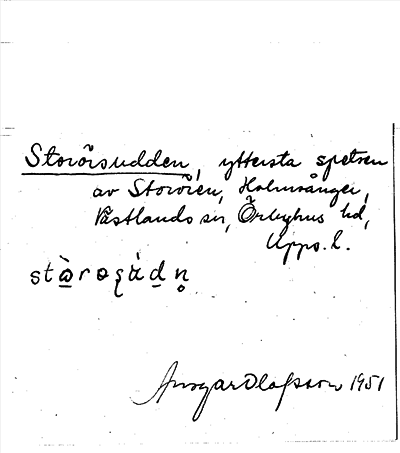 Storörsudden, yttersta spetsen
av Storören, Holmsånger,
Västlands sn, Örbyhus hd,
Upps. l.
Ansgar Olofsson 1951